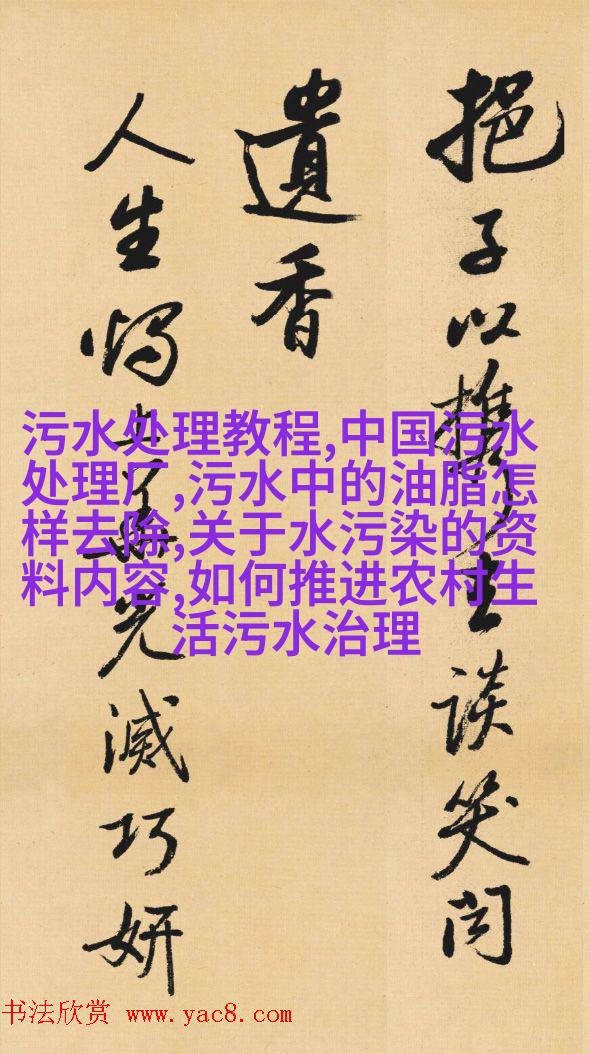 挹子以攜去談笑聞
遺香
人生燭上華光滅巧妍
污水处理教程,中国污水
处理厂,污水中的油脂怎
样去除,关于水污染的资
料内容,如何推进农村生
活污水治理
书法欣赏 www.yac8.com